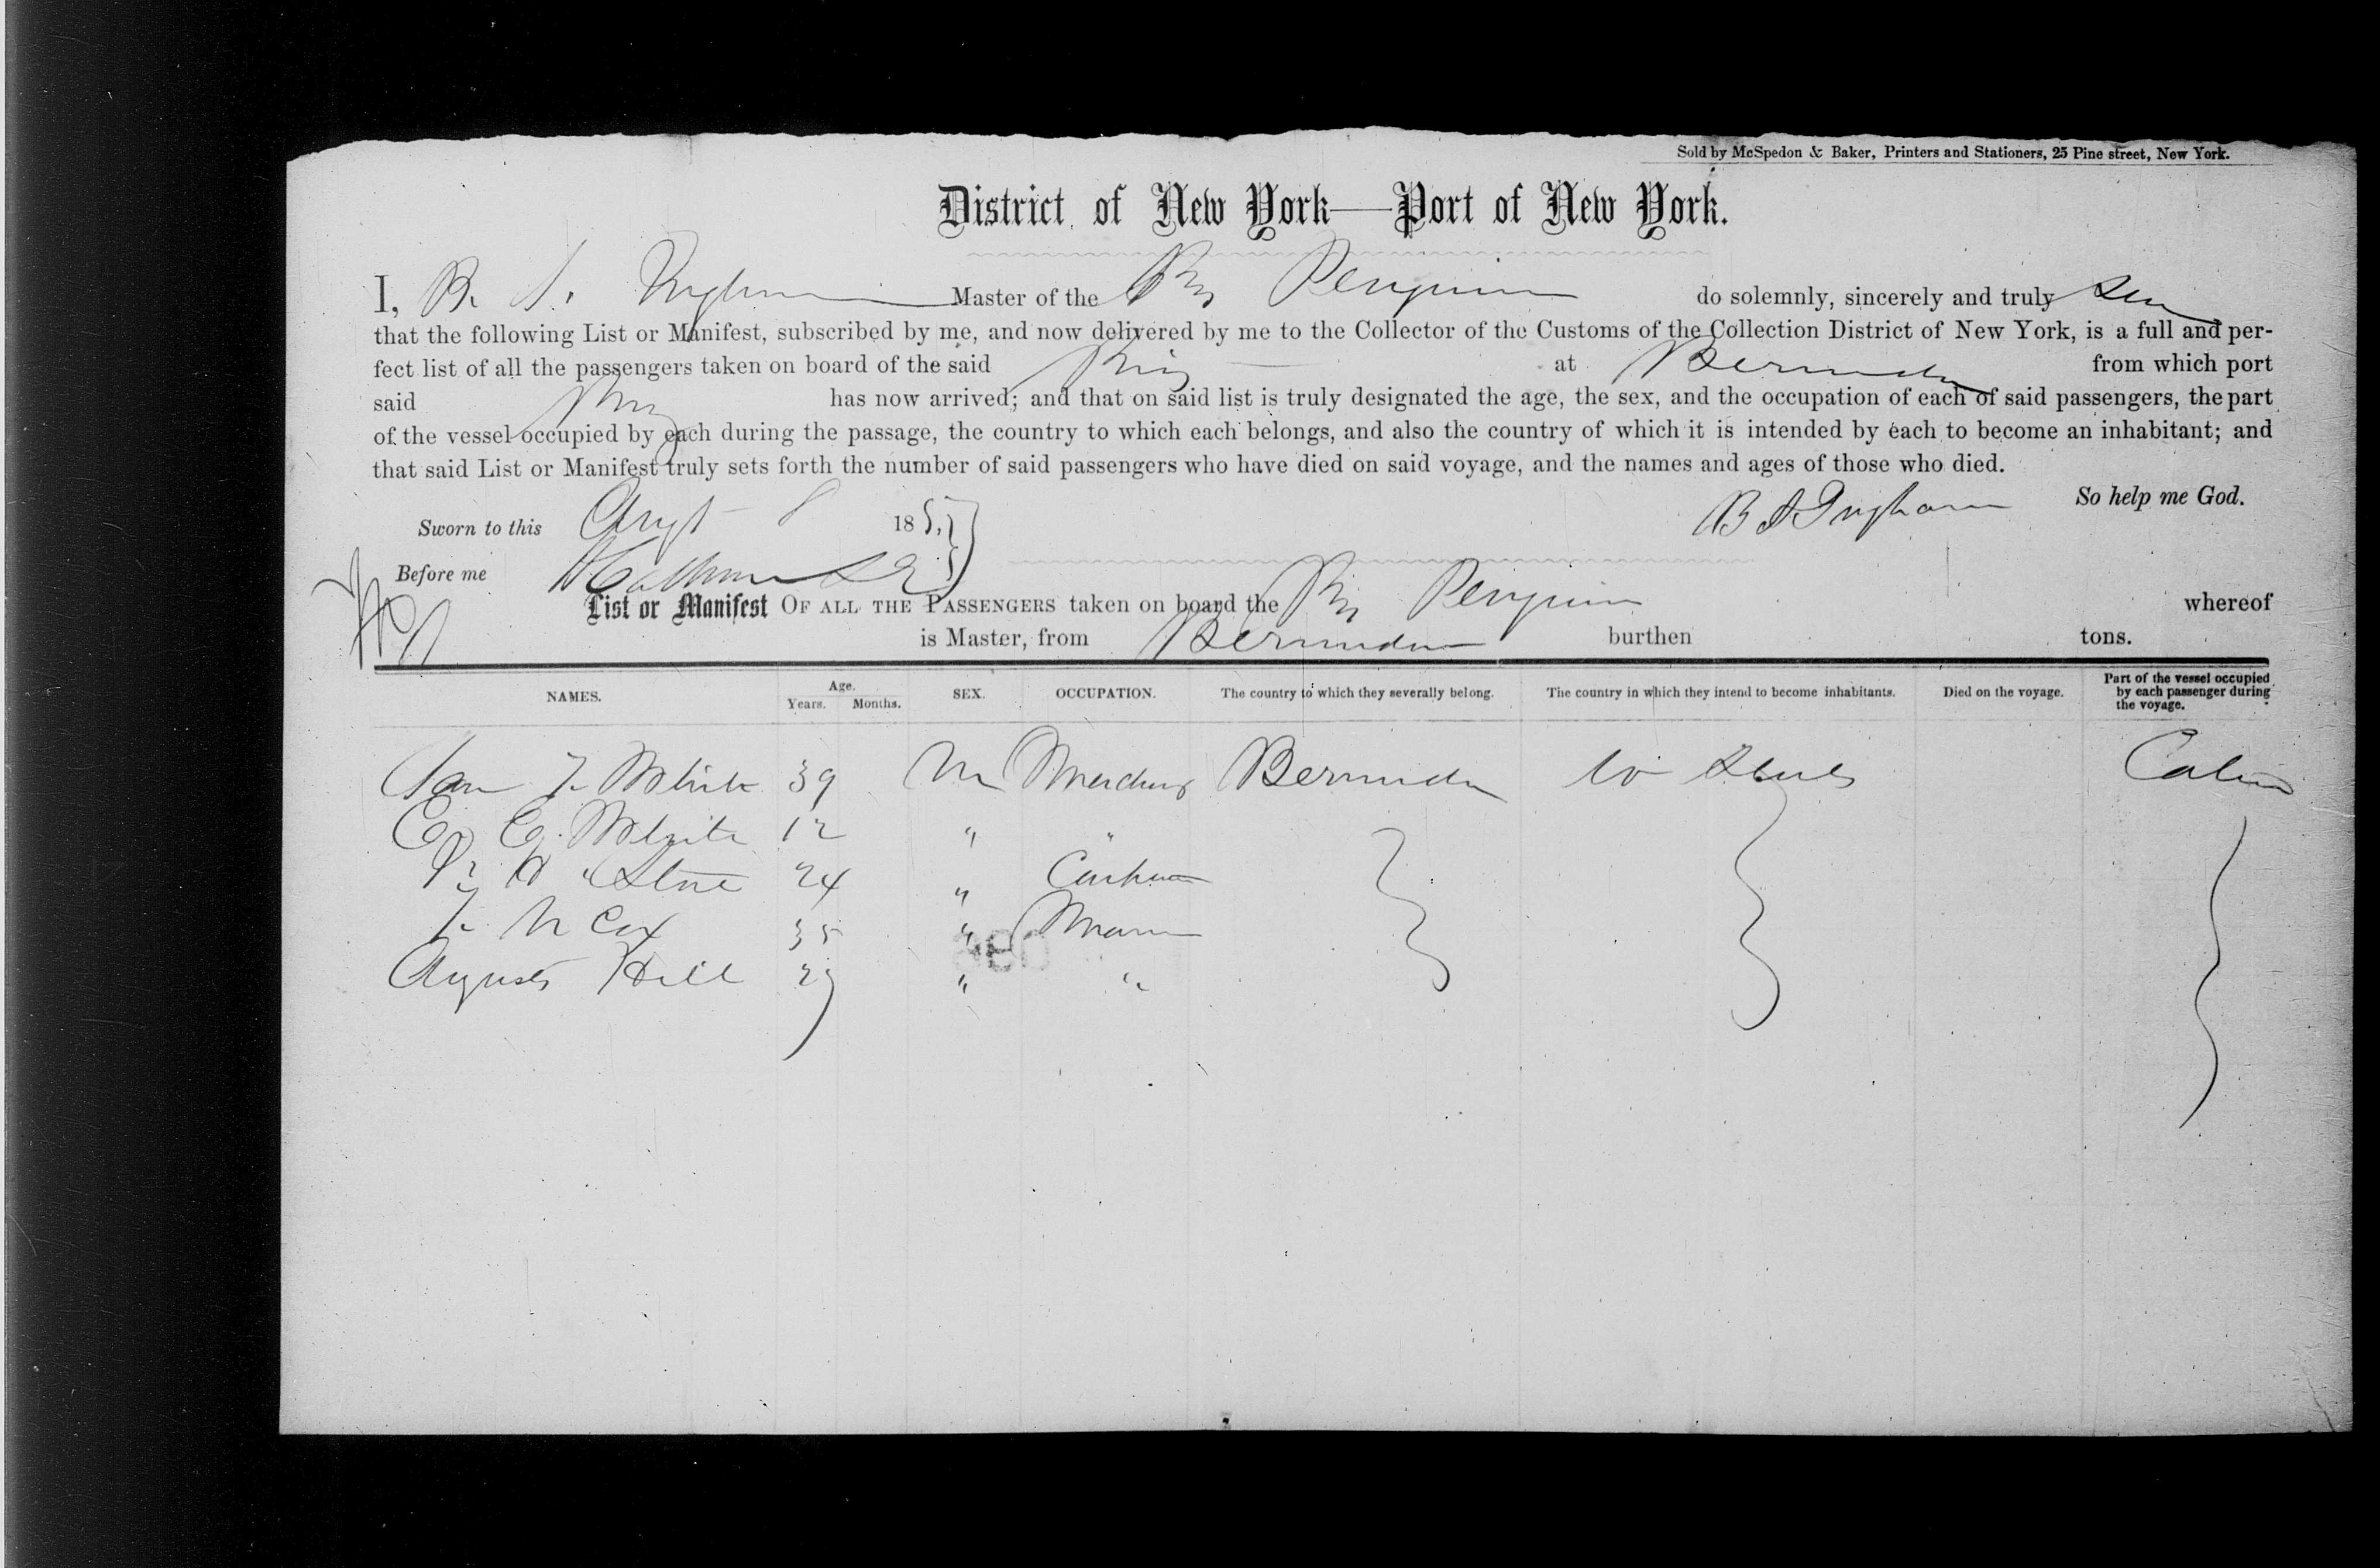 Sold by McSpedon & Baker, Printers and Stationers, 25 Pine street, New York.
District of New York—Port of New York.
I, B. S. Ingham Master of the Brig Penguin do solemnly, sincerely and truly
that the following List or Manifest, subscribed by me, and now delivered by me to the Collector of the Customs of the Collection District of New York, is a full and per-
fect list of all the passengers taken on board of the said Brig at Bermuda from which port
said Brig has now arrived; and that on said list is truly designated the age, the sex, and the occupation of each of said passengers, the part
of the vessel occupied by each during the passage, the country to which each belongs, and also the country of which it is intended by each to become an inhabitant; and
that said List or Manifest truly sets forth the number of said passengers who have died on said voyage, and the names and ages of those who died.
So help me God.
Sworn to this Augt 8 185 B S Ingham
Before me
List or Manifest OF ALL THE PASSENGERS taken on board the Brig Penguin whereof
is Master, from Bermuda burthen tons.
NAMES. Age. Years. Months. SEX. OCCUPATION. The country to which they severally belong. The country in which they intend to become inhabitants. Died on the voyage. Part of the vessel occupied by each passenger during the voyage.
White 39 M Merchant Bermuda U States Cabin
White 12 " "
Stone 24 " Carpenter
Cox 35 "
Augusts Hill 29 " "